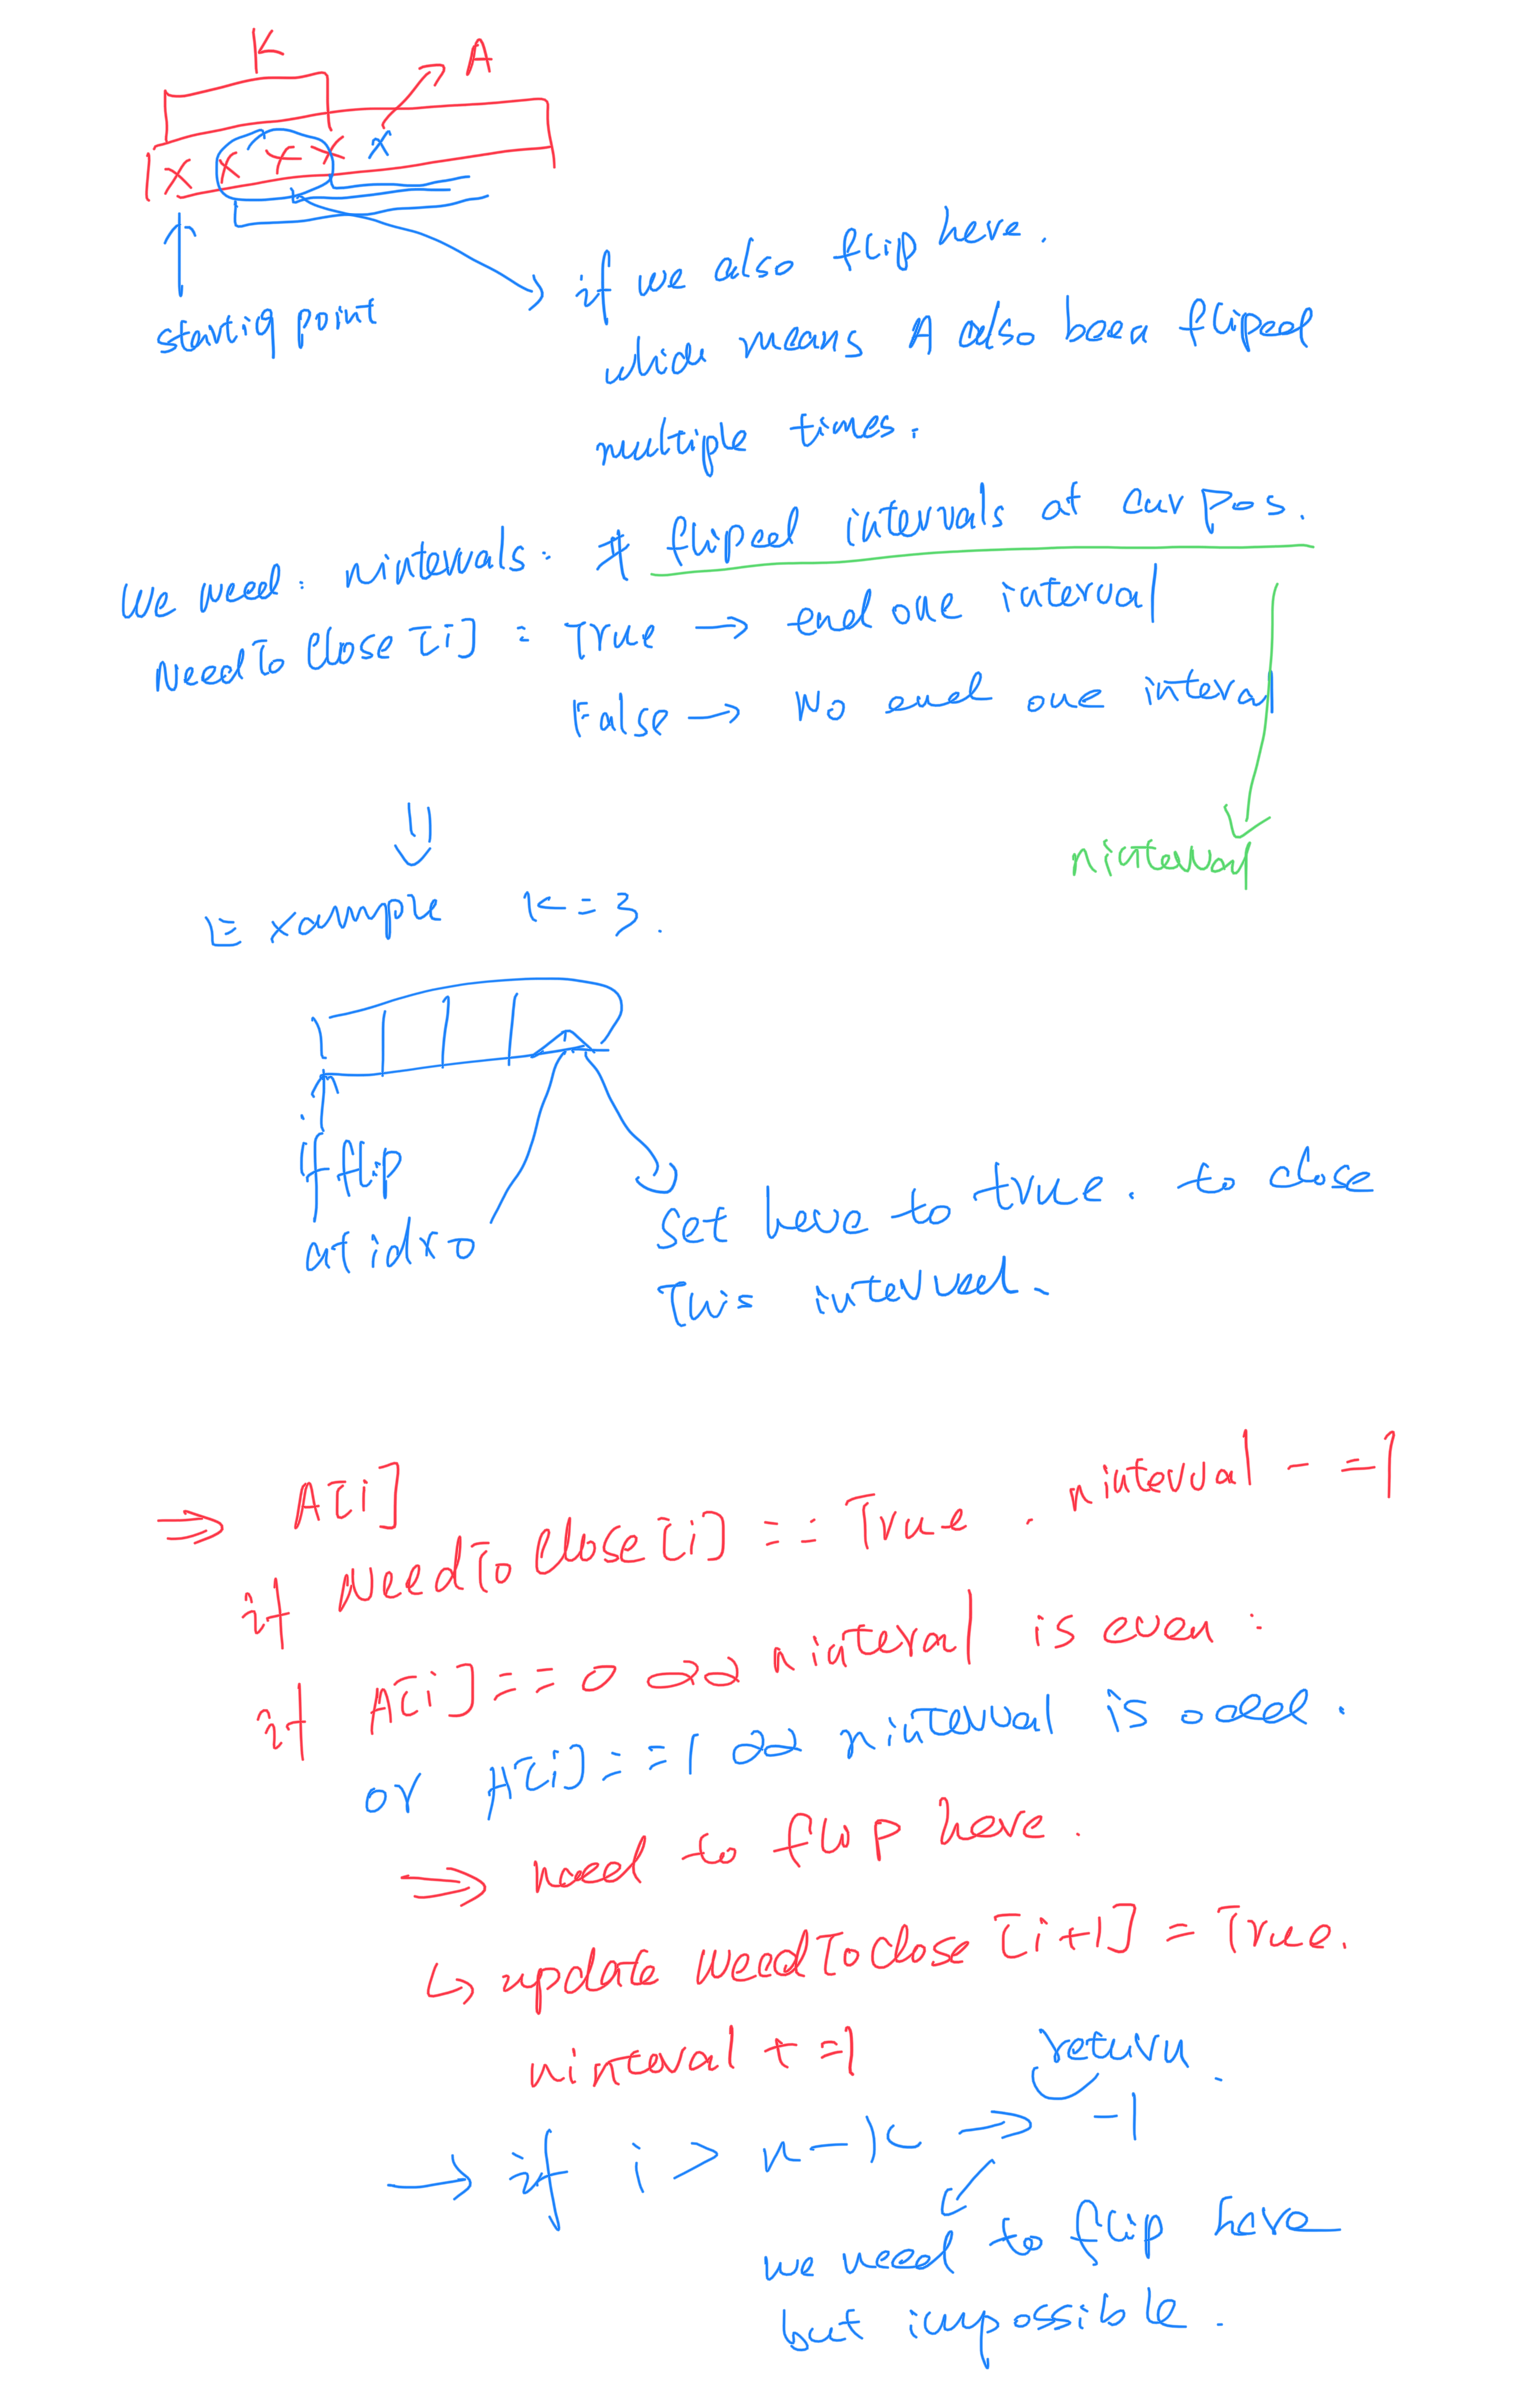 K
A
x x x x x
starting point
if we also flip here.
which means A also been fliped
multiple times.
We need: nintevals: # fliped intervals at cur pos.
NeedToClose[i] : True → end one interval
False → No end one interval
ninterval
Example K=3.
if flip
at idx 0
set here to true. to close
This interval.
⇒ A[i]
if NeedToClose[i] == True . ninterval -=1
if A[i]==0 && ninterval is even :
or A[i]==1 && ninterval is odd.
⇒ need to flip here.
↳ update NeedToClose[i+1] = True.
ninterval +=1
return.
→ if i > n-k ⇒ -1
we need to flip here
but impossible.